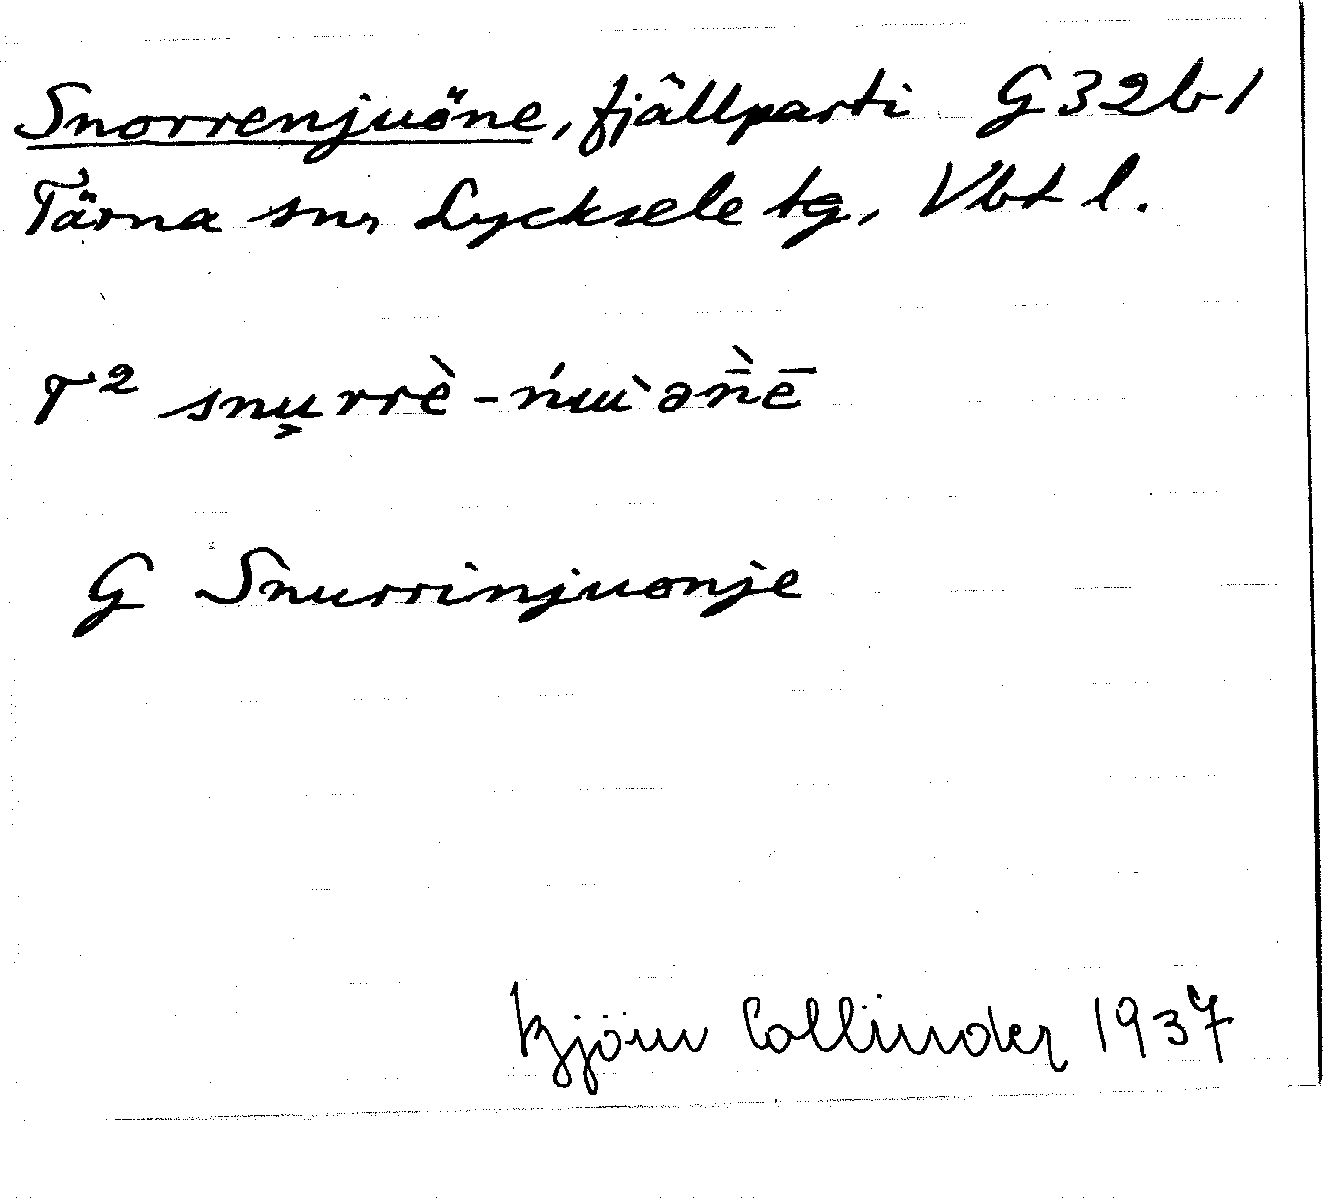 Snorrenjuöne, fjällparti G32b1
Tärna sn, Lycksele tg, Vbt l.
T² snu̬rrè-ńɯ̀ən̄̀ē
G Snurrinjuonje
Björn Collinder 1937